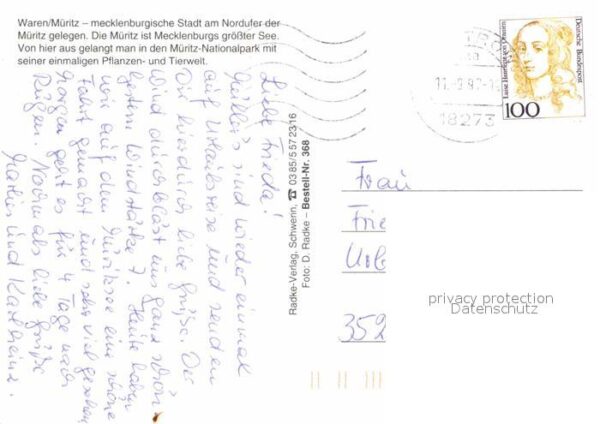 Waren/Müritz – mecklenburgische Stadt am Nordufer der
Müritz gelegen. Die Müritz ist Mecklenburgs größter See.
Von hier aus gelangt man in den Müritz-Nationalpark mit
seiner einmaligen Pflanzen- und Tierwelt.
Liebe Frieda!
sind wieder einmal
auf Urlaubsreise und senden
Dir hierdurch liebe Grüße. Der
Wind durchbläst uns ganz schön
gestern Windstärke 7. Heute haben
wir auf dem Müritzsee eine schöne
Fahrt gemacht und sehr viel gesehen.
Morgen geht es für 4 Tage nach
Rügen. Nochmals liebe Grüße
und Katharina.
Radke-Verlag, Schwerin, ☎ 0385/5572316
Foto: D. Radke – Bestell-Nr. 368
Luise Henriette von Oranien
Deutsche Bundespost
100
18273
Frau
Frie
352
privacy protection
Datenschutz